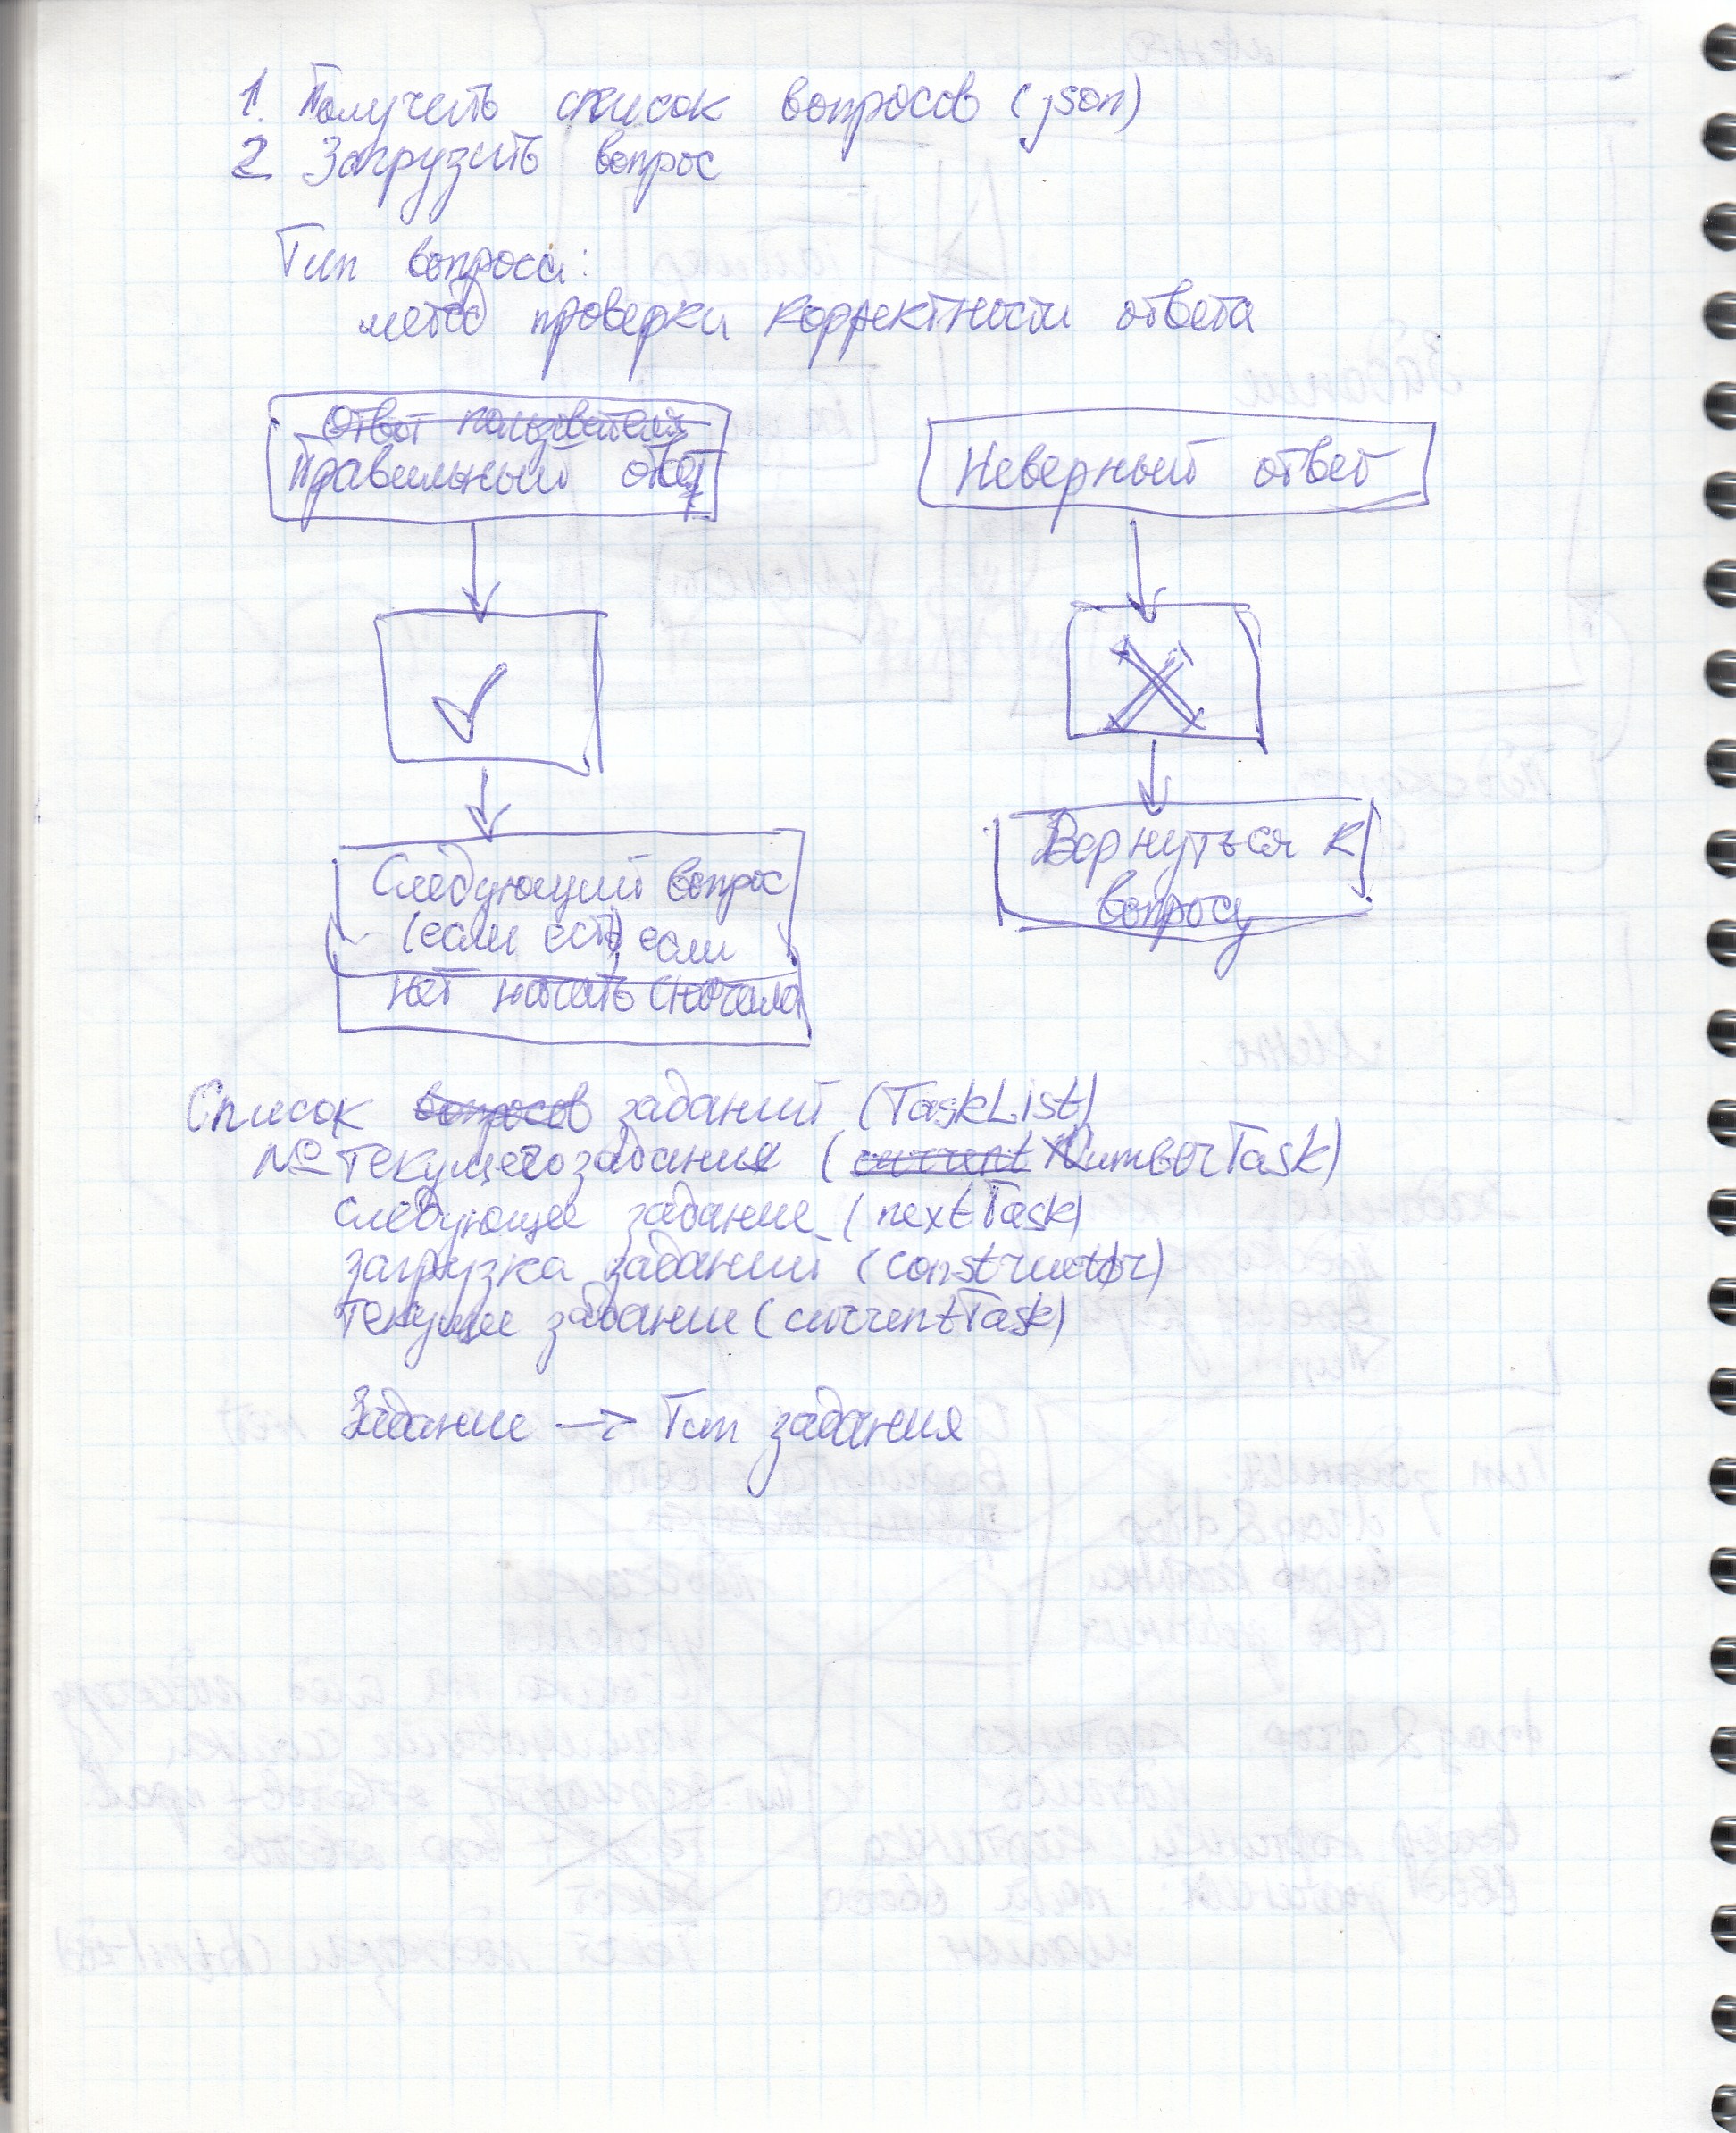 1. Получить список вопросов (json)
2 Загрузить вопрос
Тип вопроса:
метод проверки корректности ответа
Ответ пользователя
Правильный ответ
Неверный ответ
Следующий вопрос
(если есть) если
нет начать сначала
Вернуться к
вопросу
Список вопросов заданий (TaskList)
№ текущего задания (current NumberTask)
следующее задание (nextTask)
загрузка заданий (constructor)
текущее задание (currentTask)
Задание → Тип задания